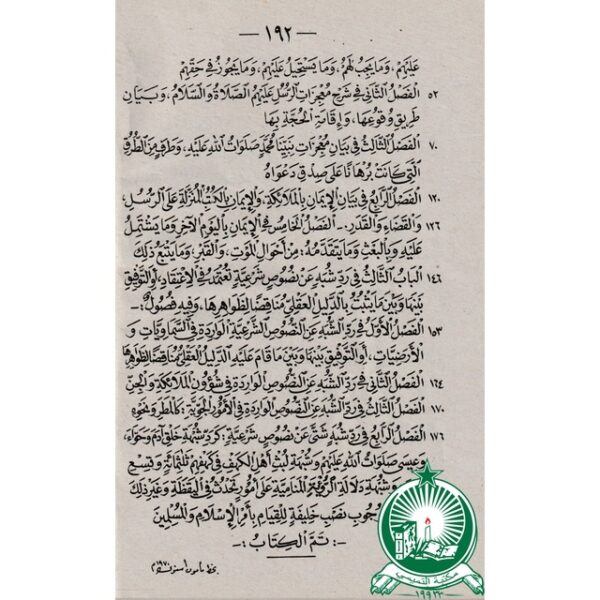 — ١٩٢ —
عَلَيْهِمْ، وَمَا يَجِبُ لَهُمْ، وَمَا يَسْتَحِيلُ عَلَيْهِمْ، وَمَا يَجُوزُ فِي حَقِّهِمْ
٥٢ الفَصْلُ الثَّانِي فِي شَرْحِ مُعْجِزَاتِ الرُّسُلِ عَلَيْهِمُ الصَّلَاةُ وَالسَّلَامُ، وَبَيَانِ
طَرِيقِ وُقُوعِهَا، وَإِقَامَةِ الحُجَّةِ بِهَا
٧٠ الفَصْلُ الثَّالِثُ فِي بَيَانِ مُعْجِزَاتِ نَبِيِّنَا مُحَمَّدٍ صَلَوَاتُ اللهِ عَلَيْهِ، وَطَرَفٍ مِنَ الطُّرُقِ
الَّتِي كَانَتْ بُرْهَانًا عَلَى صِدْقِ دَعْوَاهُ
١٢٠ الفَصْلُ الرَّابِعُ فِي بَيَانِ الإِيمَانِ بِالمَلَائِكَةِ، وَالإِيمَانِ بِالكُتُبِ المُنَزَّلَةِ عَلَى الرُّسُلِ،
١٢٦ وَالقَضَاءِ وَالقَدَرِ. - الفَصْلُ الخَامِسُ فِي الإِيمَانِ بِاليَوْمِ الآخِرِ وَمَا يَشْتَمِلُ
عَلَيْهِ وَبِالبَعْثِ وَمَا يَتَقَدَّمُهُ: مِنْ أَحْوَالِ المَوْتِ، وَالقَبْرِ، وَمَا يَتْبَعُ ذَلِكَ
١٤٦ البَابُ الثَّالِثُ فِي رَدِّ شُبَهٍ عَنْ نُصُوصٍ شَرْعِيَّةٍ تُعْتَمَدُ فِي الاِعْتِقَادِ، أَوِ التَّوْفِيقِ
بَيْنَهَا وَبَيْنَ مَا يَثْبُتُ بِالدَّلِيلِ العَقْلِيِّ مُنَاقِضًا لِظَوَاهِرِهَا، وَفِيهِ فُصُولٌ: -
١٥٣ الفَصْلُ الأَوَّلُ فِي رَدِّ الشُّبَهِ عَنِ النُّصُوصِ الشَّرْعِيَّةِ الوَارِدَةِ فِي السَّمَاوِيَّاتِ وَ
الأَرْضِيَّاتِ، أَوِ التَّوْفِيقِ بَيْنَهَا وَبَيْنَ مَا قَامَ عَلَيْهِ الدَّلِيلُ العَقْلِيُّ مُنَاقِضًا لِظَوَاهِرِهَا
١٦٤ الفَصْلُ الثَّانِي فِي رَدِّ الشُّبَهِ عَنِ النُّصُوصِ الوَارِدَةِ فِي شُؤُونِ المَلَائِكَةِ وَالجِنِّ
١٧٠ الفَصْلُ الثَّالِثُ فِي رَدِّ الشُّبَهِ عَنِ النُّصُوصِ الوَارِدَةِ فِي الأُمُورِ الجَوِّيَّةِ: كَالمَطَرِ وَنَحْوِهِ
١٧٦ الفَصْلُ الرَّابِعُ فِي رَدِّ شُبَهٍ شَتَّى عَنْ نُصُوصٍ شَرْعِيَّةٍ: كَرَدِّ شُبْهَةِ خَلْقِ آدَمَ وَحَوَّاءَ،
وَعِيسَى صَلَوَاتُ اللهِ عَلَيْهِمْ وَشُبْهَةِ لُبْثِ أَهْلِ الكَهْفِ فِي كَهْفِهِمْ ثَلَثَمِائَةٍ وَتِسْعَ
وَشُبْهَةِ دَلَالَةِ الرُّؤْيَا المَنَامِيَّةِ عَلَى أُمُورٍ تَحْدُثُ فِي اليَقَظَةِ وَغَيْرِ ذَلِكَ
وُجُوبِ نَصْبِ خَلِيفَةٍ لِلْقِيَامِ بِأَمْرِ الإِسْلَامِ وَالمُسْلِمِينَ
-: تَمَّ الكِتَابُ :-
١٩٧٠م
١٩٩٢